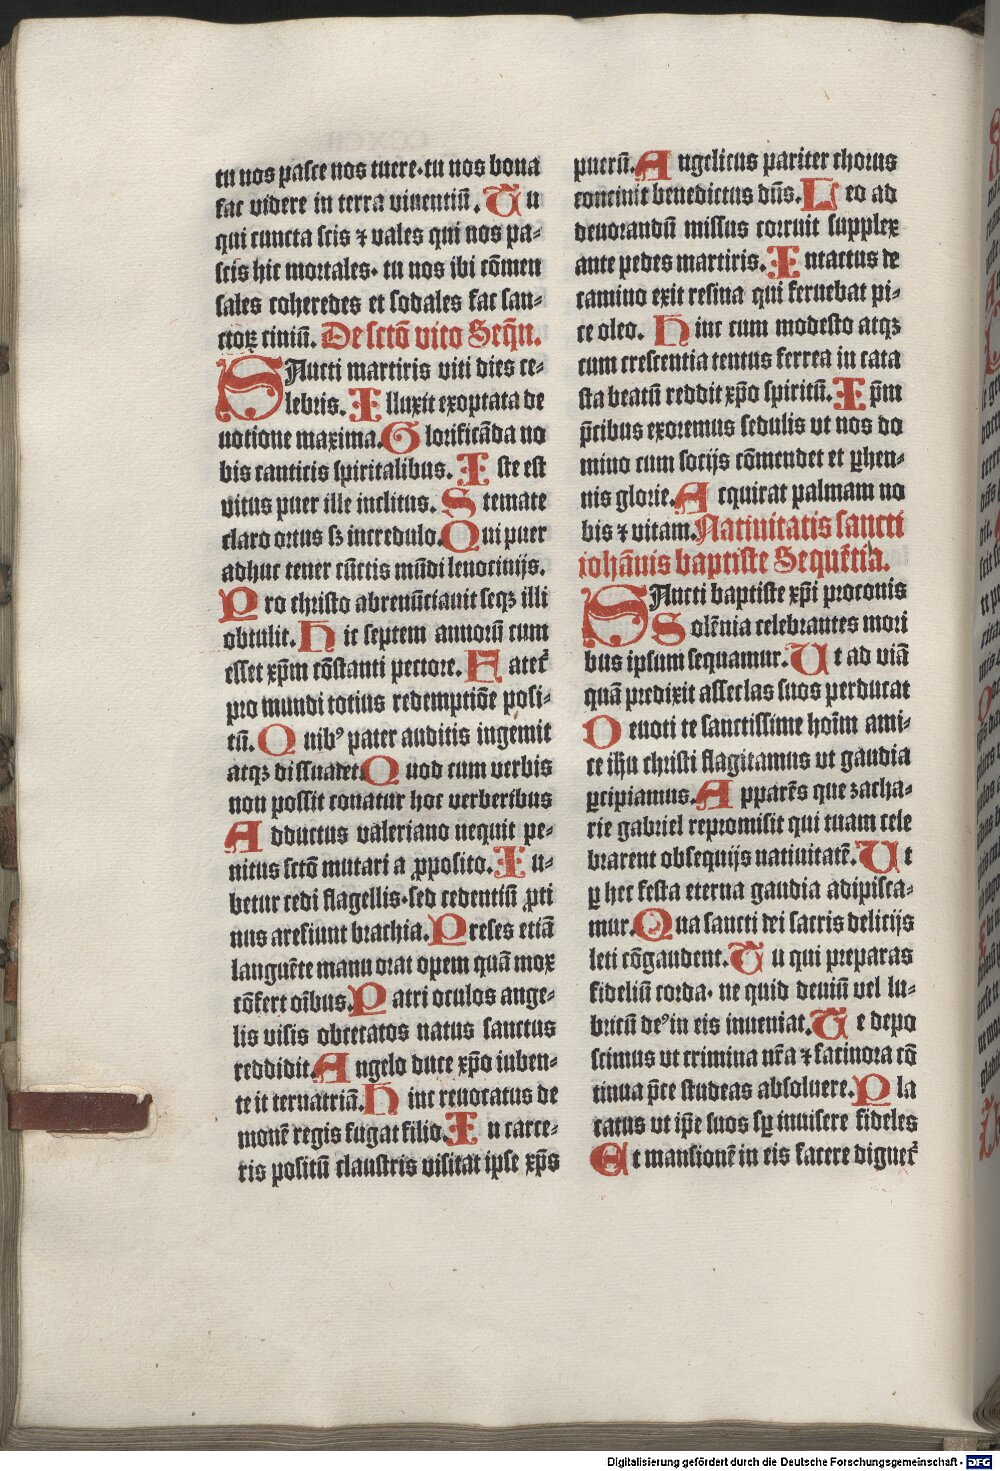 tu nos pasce nos tuere·tu nos bona
fac videre in terra viuentiũ. Tu
qui cuncta scis ⁊ vales qui nos pa-
scis hic mortales· tu nos ibi cõmen
sales coheredes et sodales fac san-
ctoꝝ ciuiũ. De sctõ vito Seqũ.
SAncti martiris viti dies ce-
lebris. Illuxit exoptata de
uotione maxima. Glorificãda no
bis canticis spiritalibus. Iste est
vitus puer ille inclitus. Stemate
claro ortus sꝫ incredulo. Qui puer
adhuc tener cũctis mũdi lenocinijs.
Pro christo abrenũciauit seqꝫ illi
obtulit. Hic septem annorũ cum
esset xp̃m cõstanti pectore. Fatet᷑
pro mundi totius redemptiõe posi-
tũ. Quibꝰ pater auditis ingemit
atqꝫ dissuadet. Quod cum verbis
non possit conatur hoc verberibus
Adductus valeriano nequit pe-
nitus sctõ mutari a ꝓposito. Iu-
betur cedi flagellis·sed cedentiũ ꝓti
nus arefiunt brachia. Preses etiã
languẽte manu orat opem quã mox
cõfert oĩbus. Patri oculos ange-
lis visis obcecatos natus sanctus
reddidit. Angelo duce xp̃o iuben-
te it ternatriã. Hinc reuocatus de
monẽ regis fugat filio. In carce-
ris positũ claustris visitat ipse xp̃s
puerũ. Angelicus pariter chorus
concinit benedictus dñs. Leo ad
deuorandũ missus corruit supplex
ante pedes martiris. Intactus de
camino exit resina qui feruebat pi-
ce oleo. Hinc cum modesto atqꝫ
cum crescentia tentus ferrea in cata
sta beatũ reddit xp̃o spiritũ. Ip̃m
p̃cibus exoremus sedulis ut nos do
mino cum socijs cõmendet et ꝑhen-
nis glorie. Acquirat palmam no
bis ⁊ vitam. Natiuitatis sancti
iohãnis baptiste Sequẽtia.
SAncti baptiste xp̃i preconis
Solẽnia celebrantes mori
bus ipsum sequamur. Ut ad viã
quã predixit asseclas suos perducat
Deuoti te sanctissime hoĩm ami-
ce ihu christi flagitamus ut gaudia
ꝑcipiamus. Apparẽs que zacha-
rie gabriel repromisit qui tuam cele
brarent obsequijs natiuitatẽ. Ut
ꝑ hec festa eterna gaudia adipisca-
mur. Qua sancti dei sacris delicijs
leti cõgaudent. Tu qui preparas
fideliũ corda· ne quid deuiũ vel lu-
bricũ deꝰ in eis inueniat. Te depo
scimus ut crimina nr̃a ⁊ facinora cõ
tinua p̃ce studeas absoluere. Pla
catus ut ip̃e suos sꝑ inuisere fideles
Et mansionẽ in eis facere dignet᷑
Digitalisierung gefördert durch die Deutsche Forschungsgemeinschaft - DFG